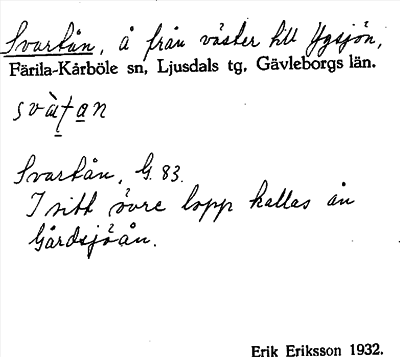 Svartån, å från väster till Ygsjön,
Färila-Kårböle sn, Ljusdals tg, Gävleborgs län.
Svartån, G. 83.
I sitt övre lopp kallas ån
Gårdsjöån.
Erik Eriksson 1932.